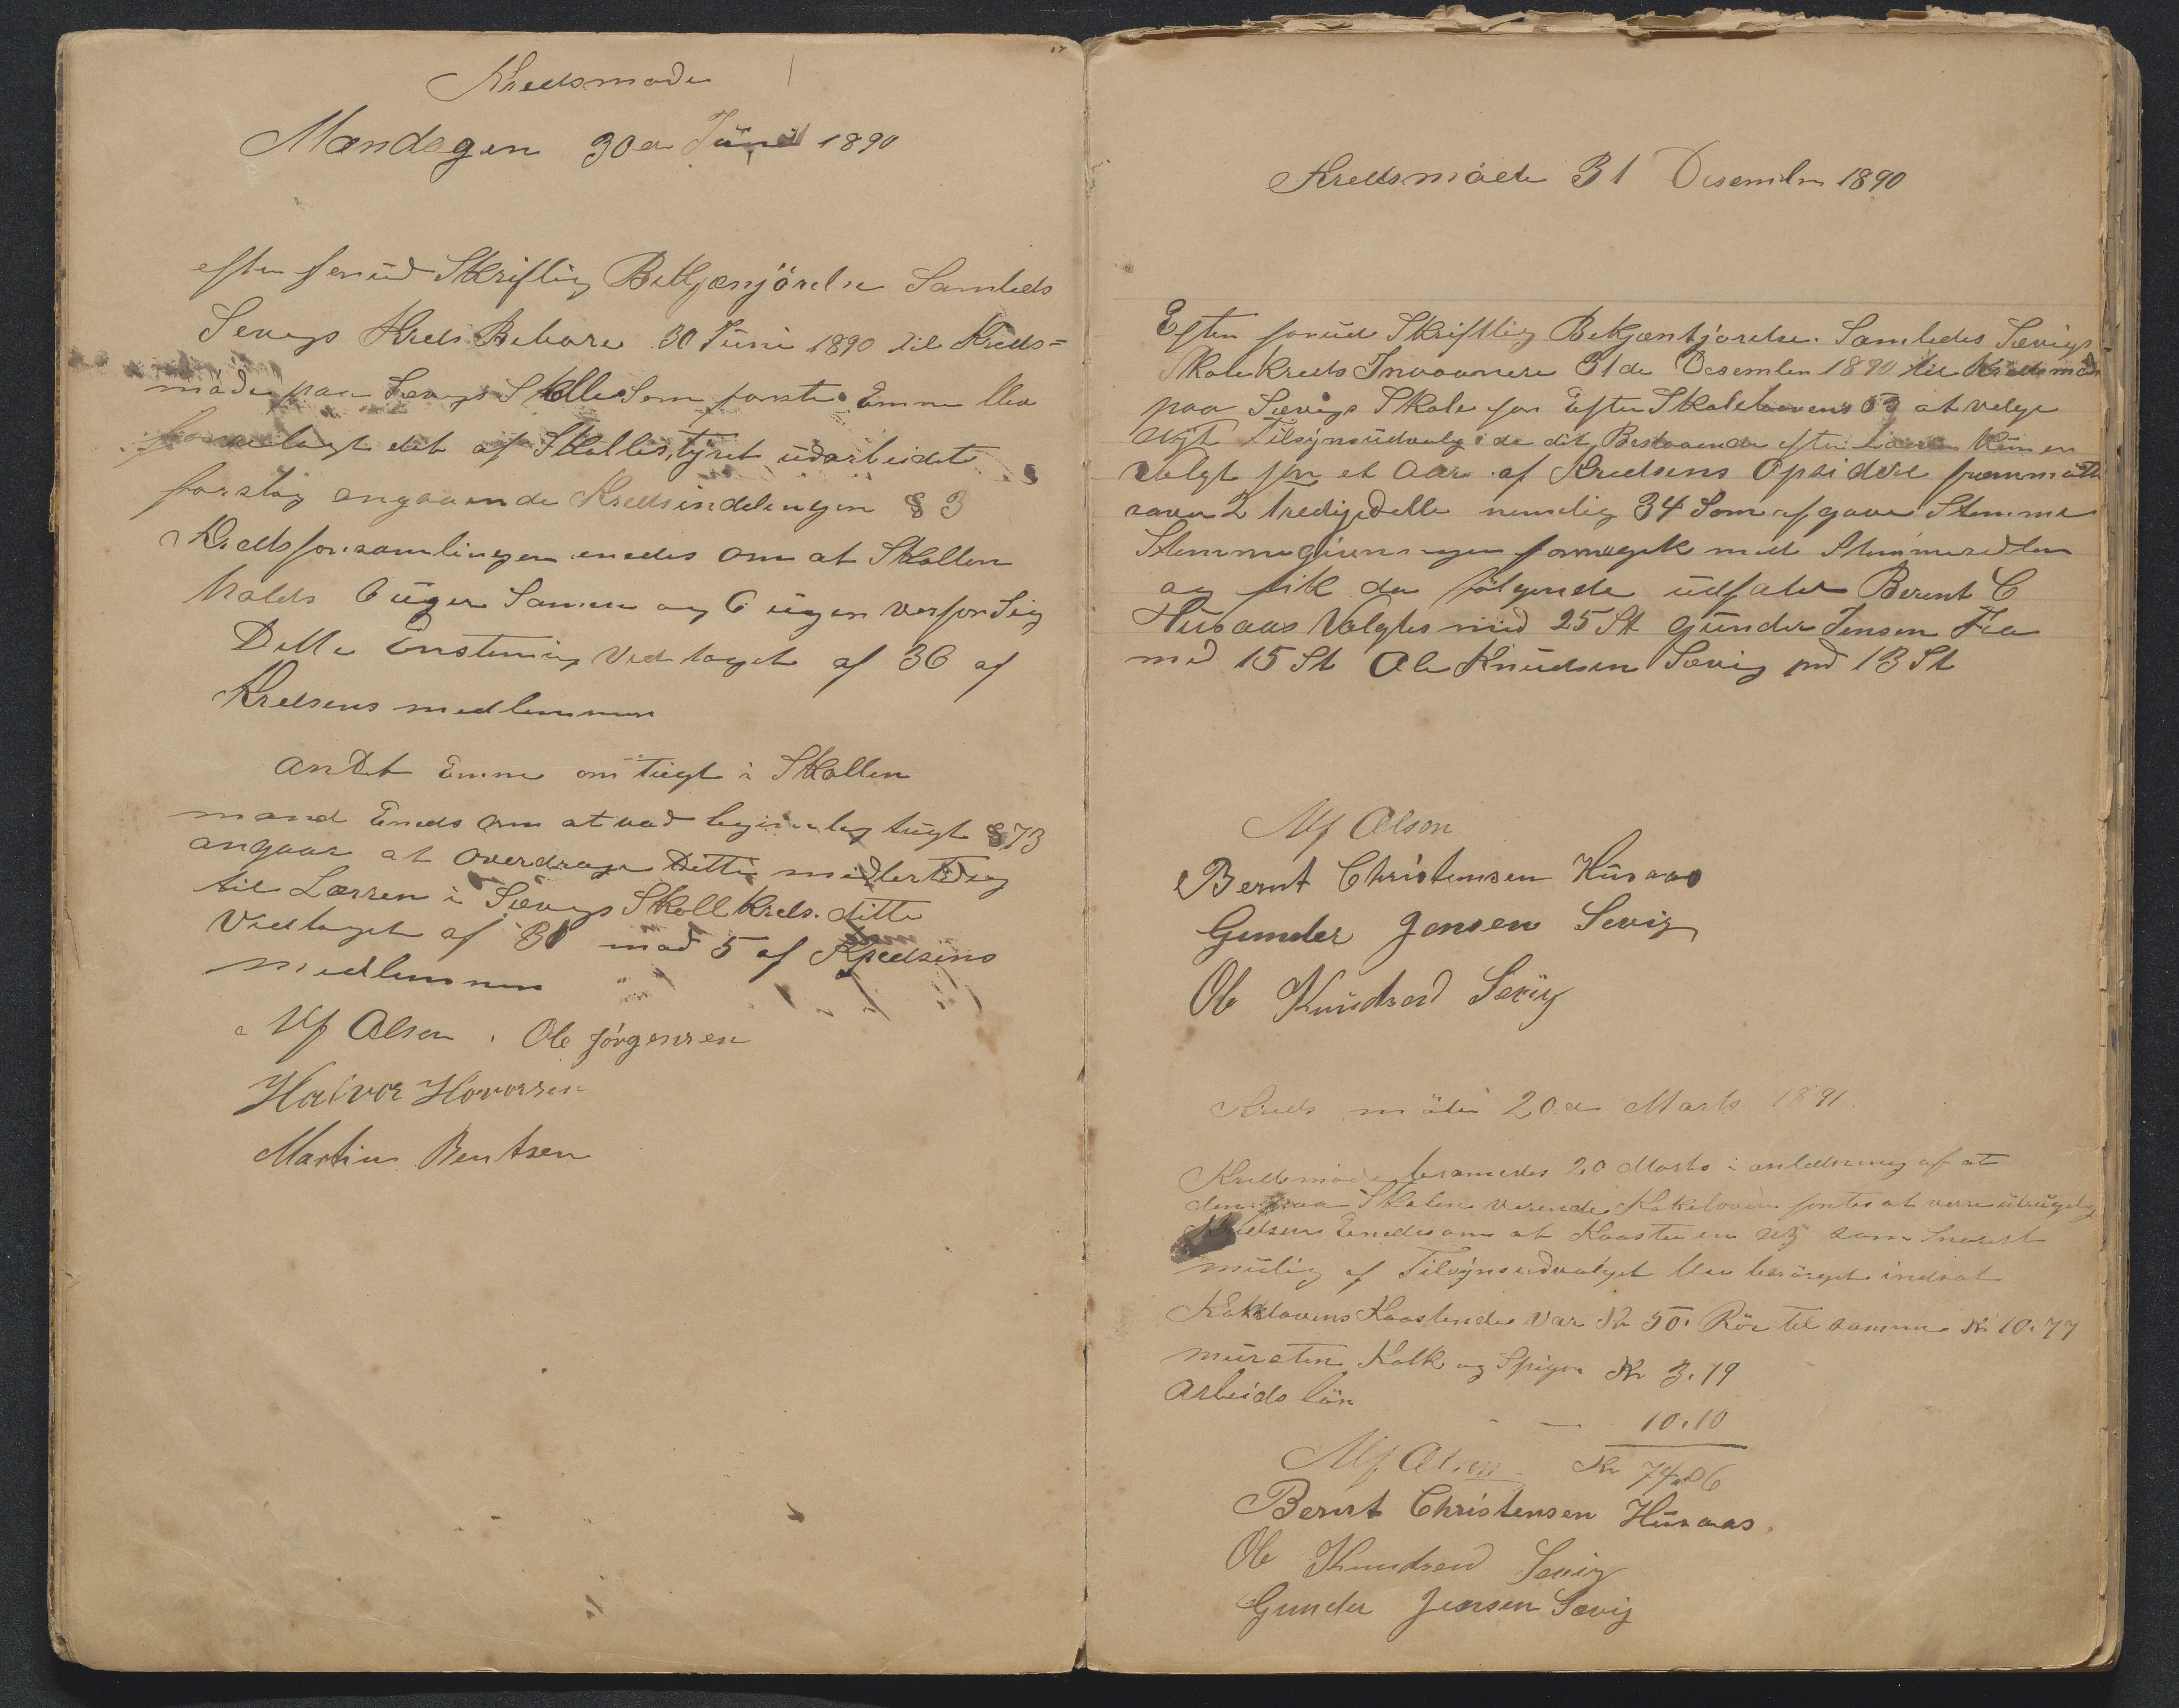 Kredsmøde
Mandagen 30 Juni 1890
efter forud Skriftlig Bekjænjörelse Samleds
Sevigs Kreds Bebore 30 Juni 1890 til Kreds=
möde paa Sævigs Skolle Som forste Emne blev
forrelagt det af Skollestyret udarbeidet
forslag angaaende Kredsindelingen § 3
Kredsforsamlingen enedes om at Skollen
holdes 6 uger Samen og 6 uger ver for Sig
Dette Enstemig Vedtaget af 36 af
Kredsens medlemmer
andet Emne om tugt i Skollen
mand Eneds om at vad legemlig tugt § 73
angaar at overdrage Dette midlertidig
til Læreren i Sævigs Skoll kreds. ditte
Vedtaget af 31 mod 5 af Kredsens
medlemmer
Alf Olsen . Ole Jörgensen
Halvor Hovorsen
Martin Bentsen
Kredsmöde 31 Desember 1890
Efter forud Skriftlig Bekjæntjörelse. Samledes Sævigs
Skolekreds Invaanere 31de Desember 1890 til Kredsmöde
paa Sævigs Skole for Efter Skolelovens 53 at velge
Nyt Tilsynsudvalg da det Bestaaende efter Loven Kun er
Valgt for et Aar af Kredsens Opsidere fremmötte
2 tredjedelle nemelig 34 Som afgav Stemme
Stemmegivningen foregik med Stemmesedler
og fik da fölgende udfald Berent C
Husaas Valgtes med 25 St Gunder Jensen
med 15 St Ole Knudsen Sævig med 13 St
Alf Olsen
Bernt Christensen Husaas
Gunder Jensen Sevig
Ole Knudsen Sevig
Kreds möde 20 Marts 1891.
Kredsmöde beramedes 20 Marts i anledning af at
den paa Skolen verende Kakelovn fantes at verre ubrugelig
Kredsen Enedes om at Kaaste en ny som Snarest
mulig af Tilsynsudvalget blev besörget indsat
Kakelovens Kaastende var Kr 50. Rör til samme Kr 10.77
mursten Kalk og Spiger Kr 3.19
Arbeids lön - - 10.10
Alf Olsen Kr 74.06
Bernt Christensen Husaas.
Ole Knudsen Sevig
Gunder Jensen Sævig